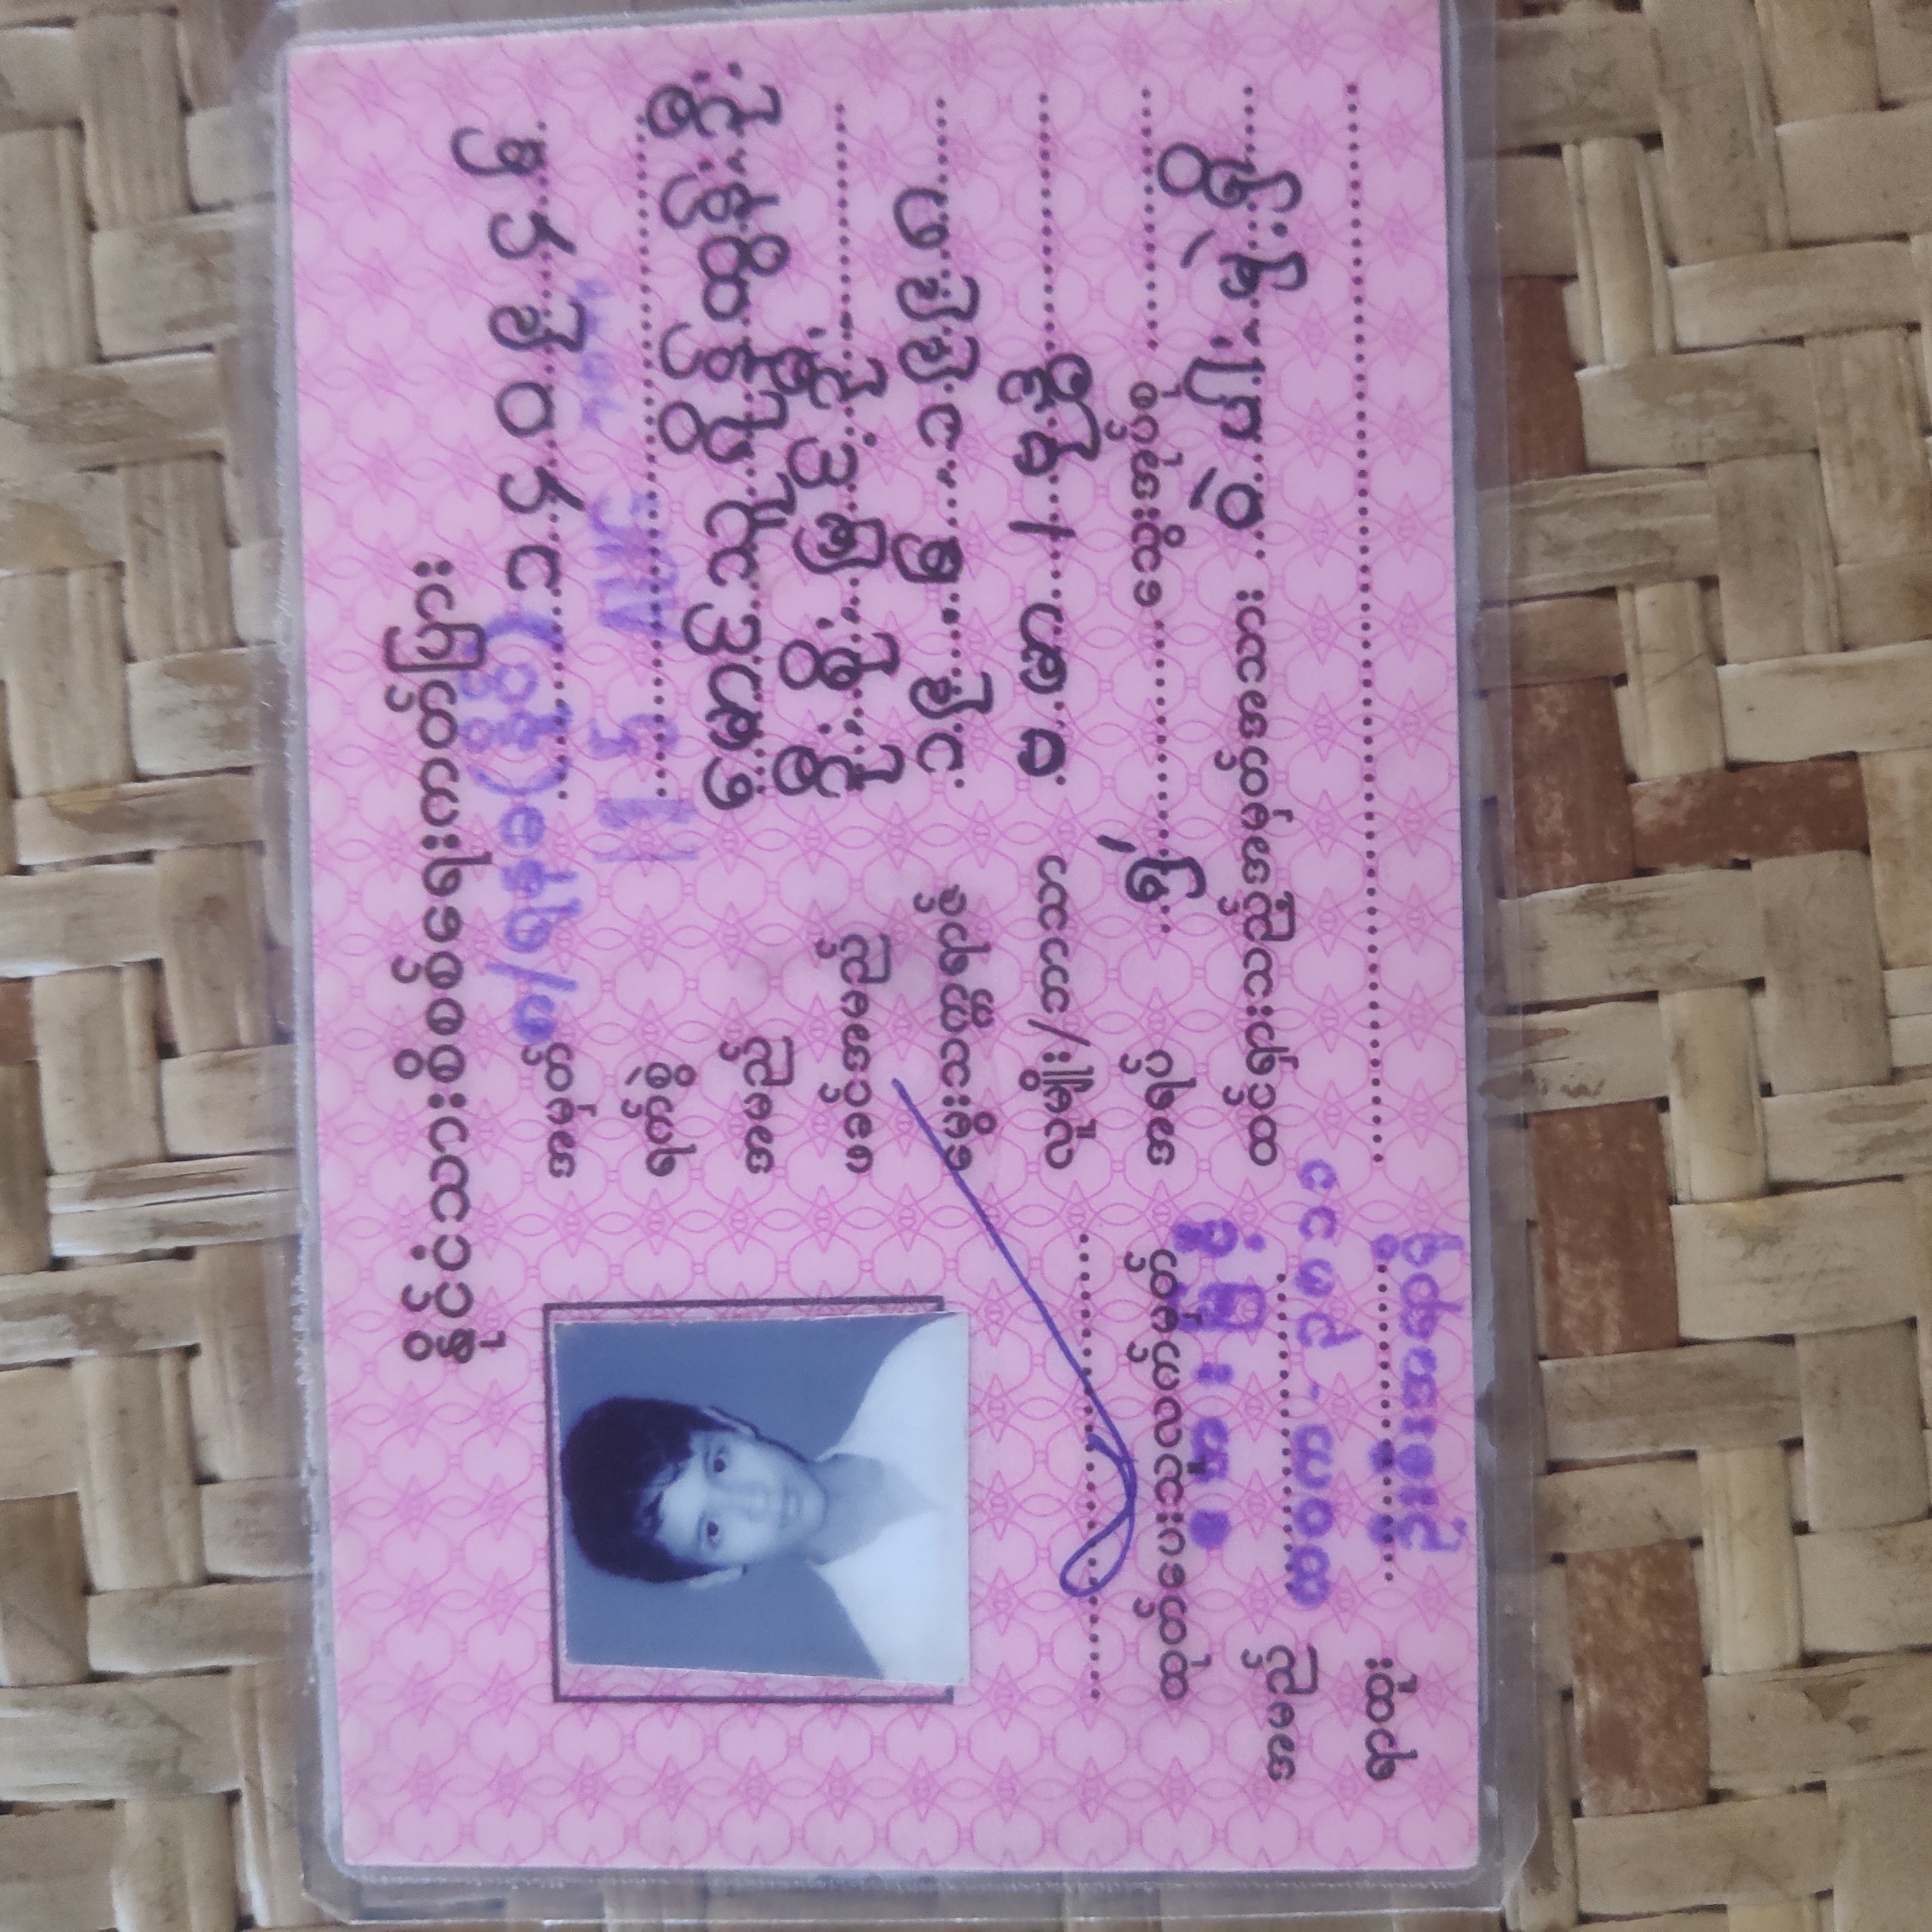 နိုင်ငံသားစိစစ်ရေးကတ်ပြား
အမှတ် ၈/ရနခ(နိုင်) ၁၄၀၉၄၆
ရက်စွဲ 15 AUG
အမည် မောင်သူရိန်ထွန်းဦး
ဖခင်အမည် ဦးစိုးမြင့်ဦး
မွေးသက္ကရာဇ် ၁၉.၆.၁၉၉၈
လူမျိုး/ဘာသာ ဗမာ/ဗုဒ္ဓ
အရပ် ၅' သွေးအုပ်စု
ထင်ရှားသည့်အမှတ်အသား ဝဲပါးမှဲ့ရှိ
ထုတ်ပေးသူလက်မှတ်
အမည် အေးမြင့်
လဝက - ၃၈၁၁
ရာထူး ဦးစီးအရာရှိ